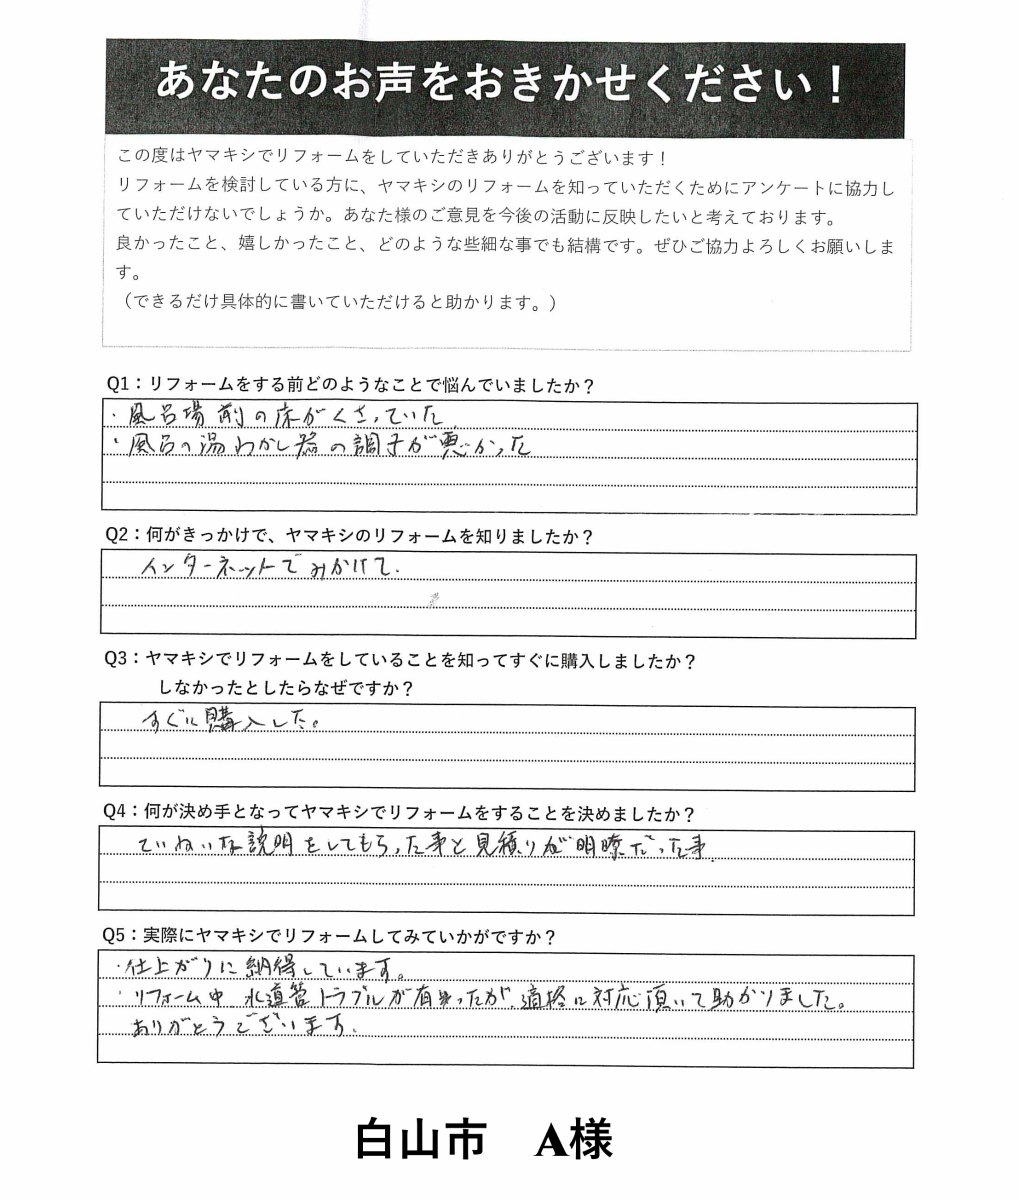 あなたのお声をおきかせください！
この度はヤマキシでリフォームをしていただきありがとうございます！
リフォームを検討している方に、ヤマキシのリフォームを知っていただくためにアンケートに協力し
ていただけないでしょうか。あなた様のご意見を今後の活動に反映したいと考えております。
良かったこと、嬉しかったこと、どのような些細な事でも結構です。ぜひご協力よろしくお願いしま
す。
（できるだけ具体的に書いていただけると助かります。）
Q1：リフォームをする前どのようなことで悩んでいましたか？
・風呂場前の床がくさっていた
・風呂の湯わかし器の調子が悪かった
Q2：何がきっかけで、ヤマキシのリフォームを知りましたか？
インターネットでみかけて.
Q3：ヤマキシでリフォームをしていることを知ってすぐに購入しましたか？
しなかったとしたらなぜですか？
すぐに購入した。
Q4：何が決め手となってヤマキシでリフォームをすることを決めましたか？
ていねいな説明をしてもらった事と見積りが明瞭だった事.
Q5：実際にヤマキシでリフォームしてみていかがですか？
・仕上がりに納得しています。
・リフォーム中水道管トラブルが有ったが、適格に対応頂いて助かりました。
ありがとうございます.
白山市 A様